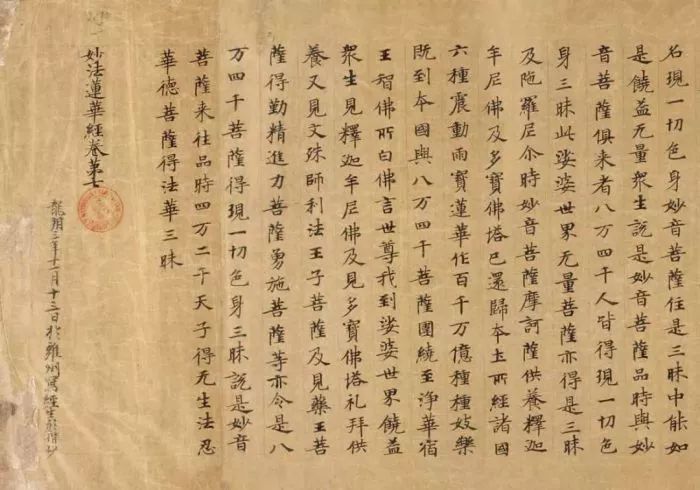 名現一切色身妙音菩薩住是三昧中能如
是饒益无量衆生說是妙音菩薩品時與妙
音菩薩俱来者八万四千人皆得現一切色
身三昧此娑婆世界无量菩薩亦得是三昧
及陁羅尼尒時妙音菩薩摩訶薩供養釋迦
牟尼佛及多寶佛塔已還歸本土所經諸國
六種震動雨寶蓮華作百千万億種種妓樂
既到本國與八万四千菩薩圍繞至淨華宿
王智佛所白佛言世尊我到娑婆世界饒益
衆生見釋迦牟尼佛及見多寶佛塔礼拜供
養又見文殊師利法王子菩薩及見藥王菩
薩得勤精進力菩薩勇施菩薩等亦令是八
万四千菩薩得現一切色身三昧說是妙音
菩薩来往品時四万二千天子得无生法忍
華德菩薩得法華三昧
妙法蓮華經卷第七
龍朔三年十月十三日於雍州寫經生抄